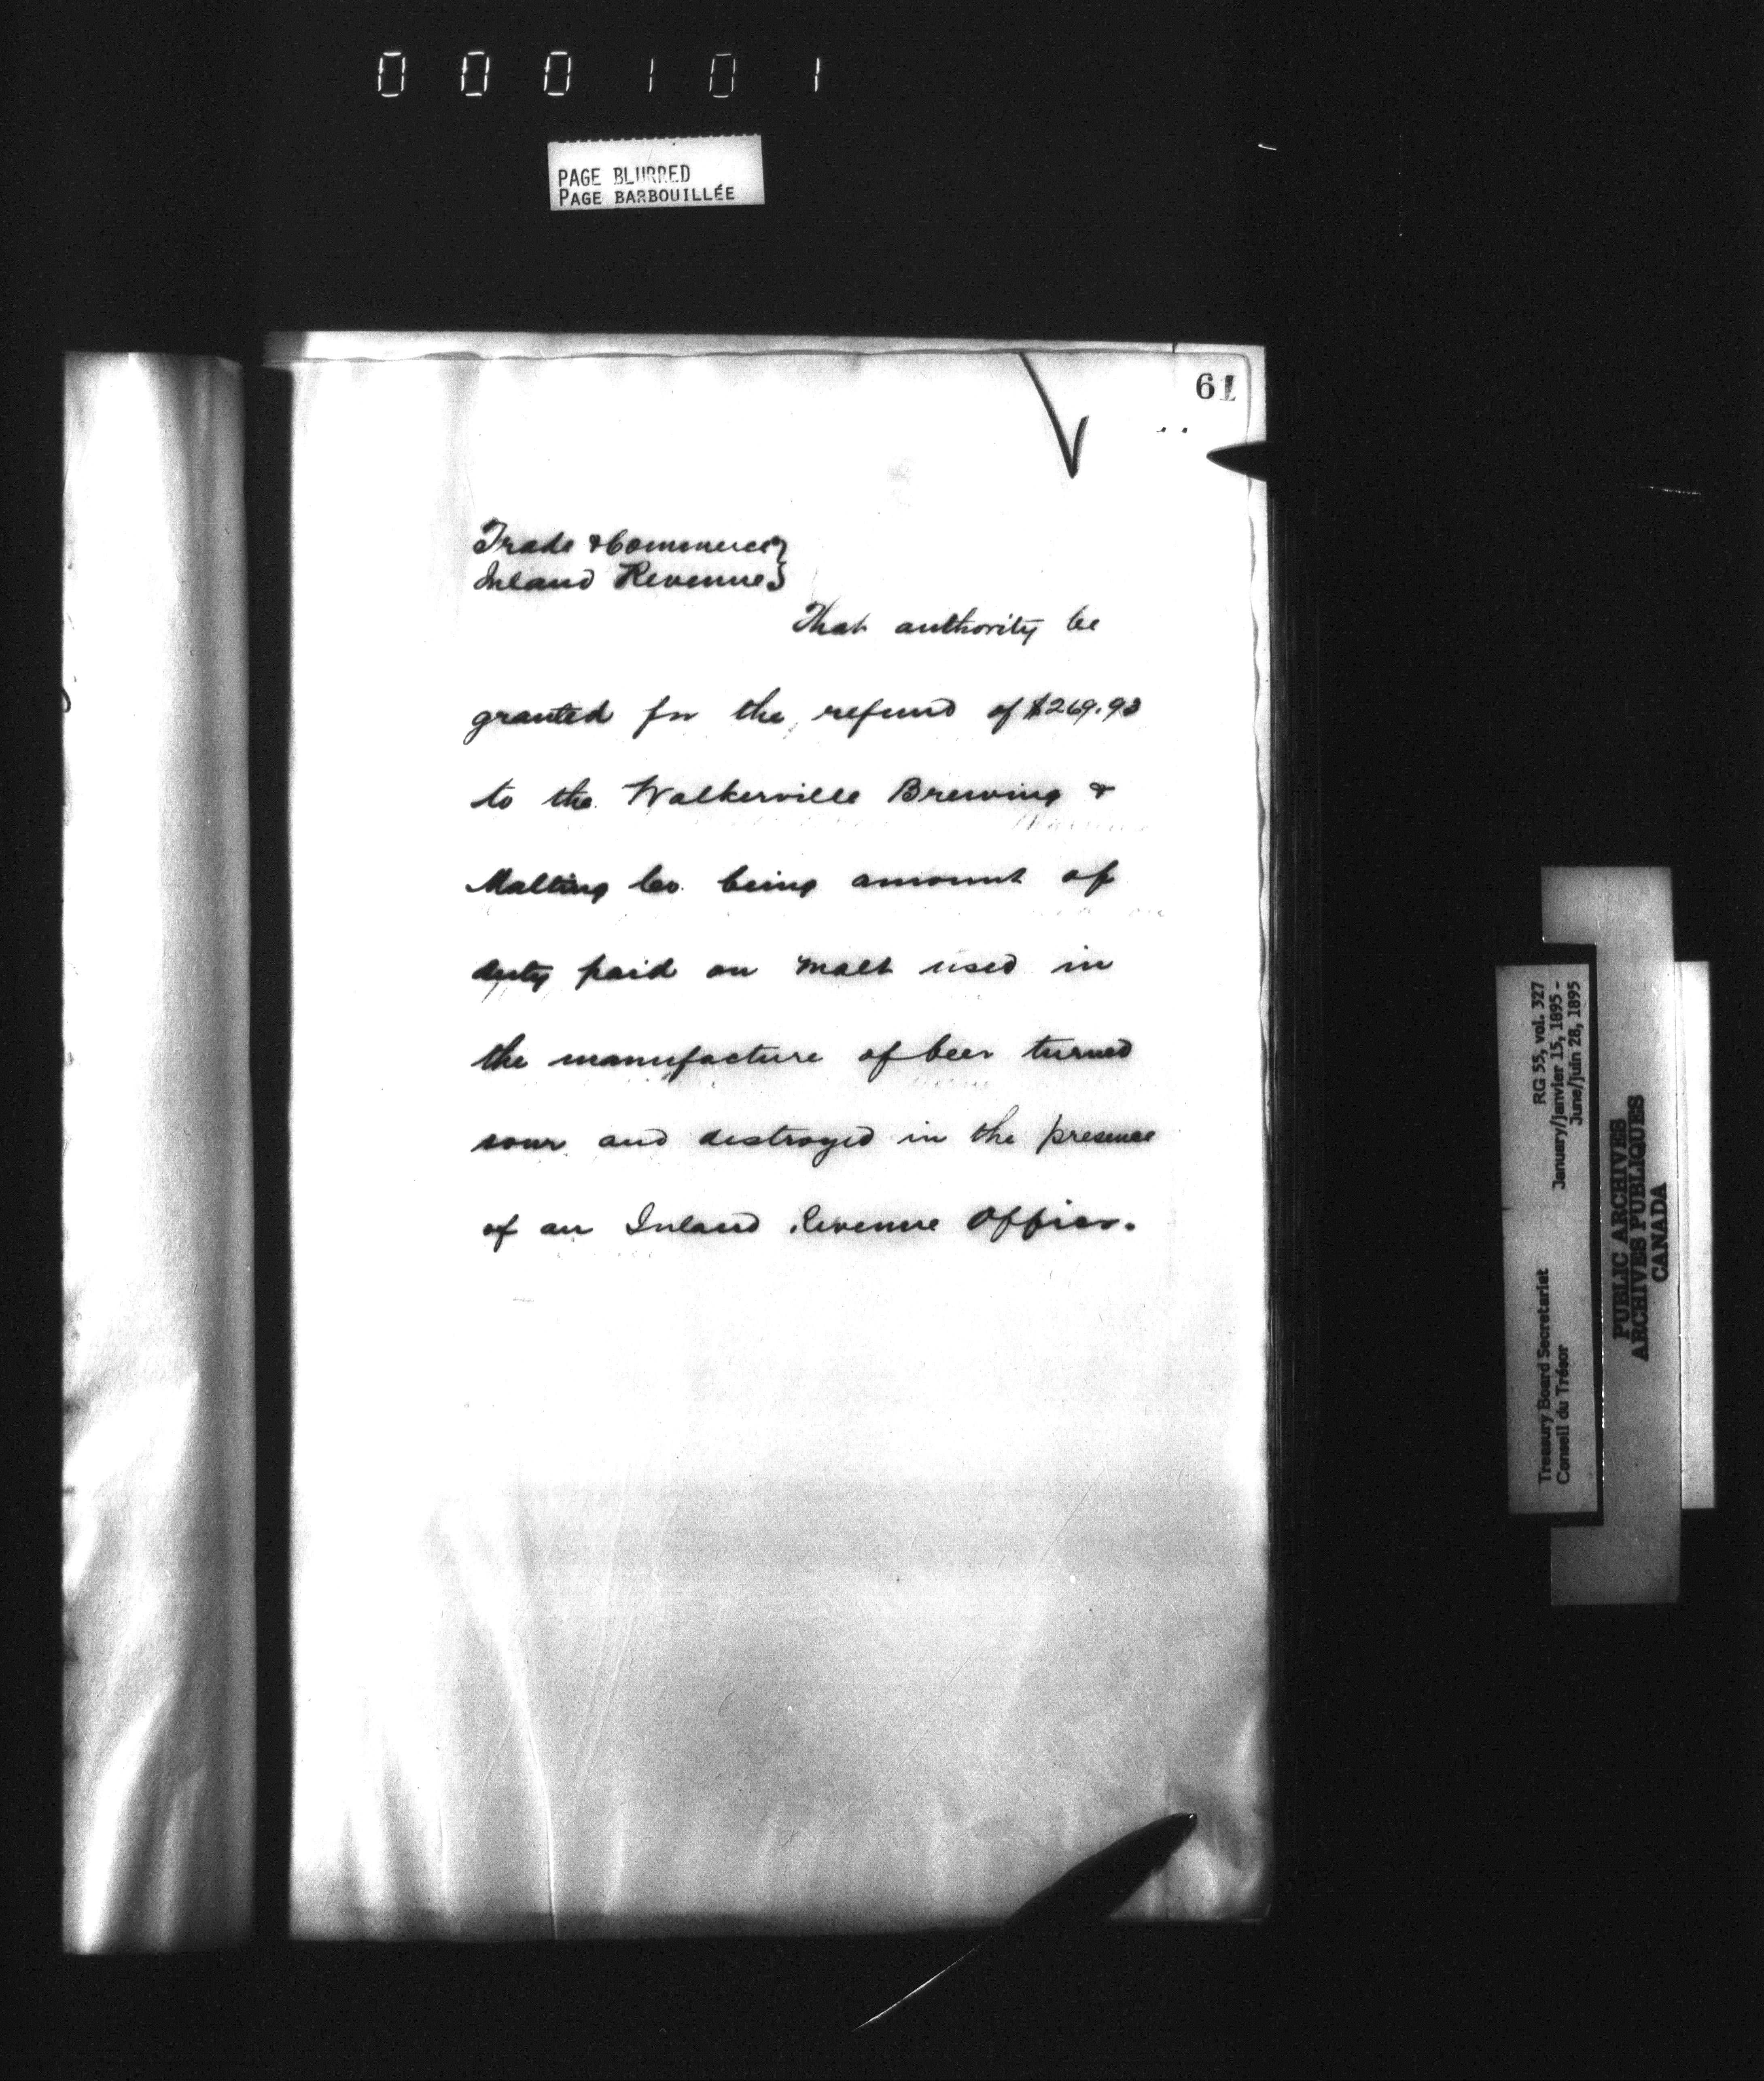 000101
PAGE BLURRED
PAGE BARBOUILLÉE
61
Trade & Commerce }
Inland Revenue }
That authority be
granted for the refund of $269.93
to the Walkerville Brewing &
Malting Co. being amount of
duty paid on malt used in
the manufacture of beer turned
sour and destroyed in the presence
of an Inland Revenue Officer.
Treasury Board Secretariat RG 55, vol. 327
Conseil du Trésor January/janvier 15, 1895 -
June/juin 28, 1895
PUBLIC ARCHIVES
ARCHIVES PUBLIQUES
CANADA